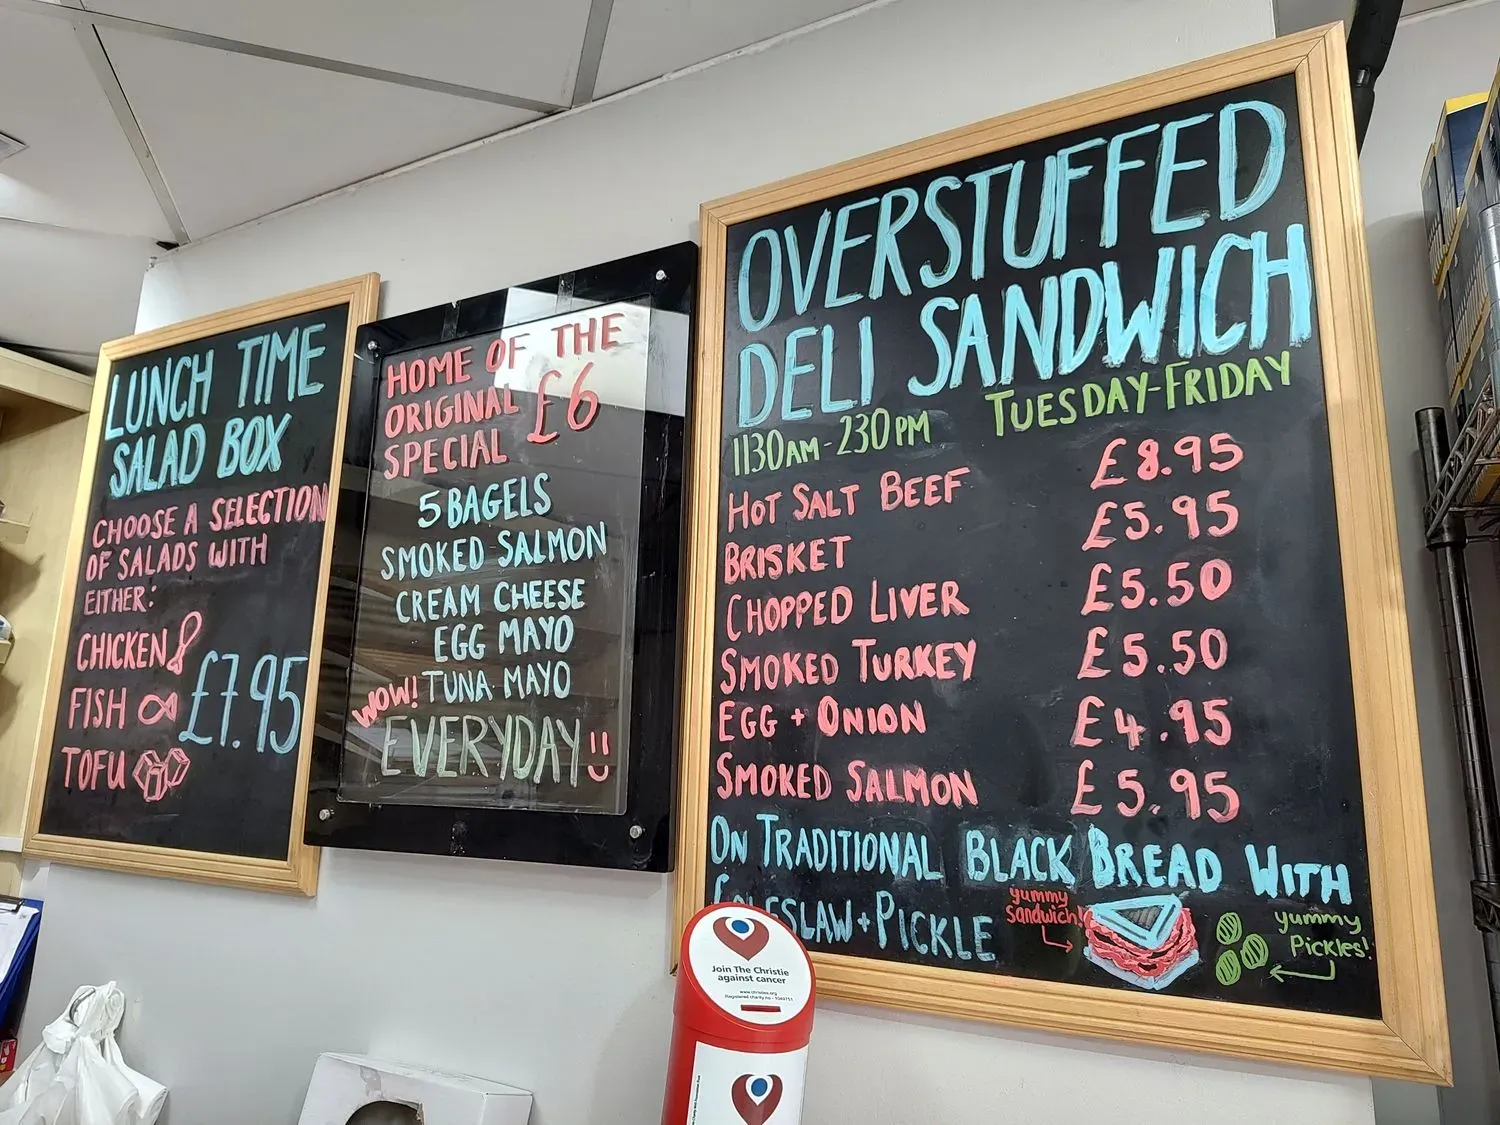 LUNCH TIME
SALAD BOX
CHOOSE A SELECTION
OF SALADS WITH
EITHER:
CHICKEN
FISH
TOFU
£7.95
HOME OF THE
ORIGINAL £6
SPECIAL
5 BAGELS
SMOKED SALMON
CREAM CHEESE
EGG MAYO
WOW! TUNA MAYO
EVERYDAY
OVERSTUFFED
DELI SANDWICH
1130AM-230PM TUESDAY-FRIDAY
HOT SALT BEEF £8.95
BRISKET £5.95
CHOPPED LIVER £5.50
SMOKED TURKEY £5.50
EGG + ONION £4.95
SMOKED SALMON £5.95
ON TRADITIONAL BLACK BREAD WITH
COLESLAW + PICKLE
yummy
sandwich!
yummy
Pickles!
Join The Christie
against cancer
www.christies.org
Registered charity no - 1049751